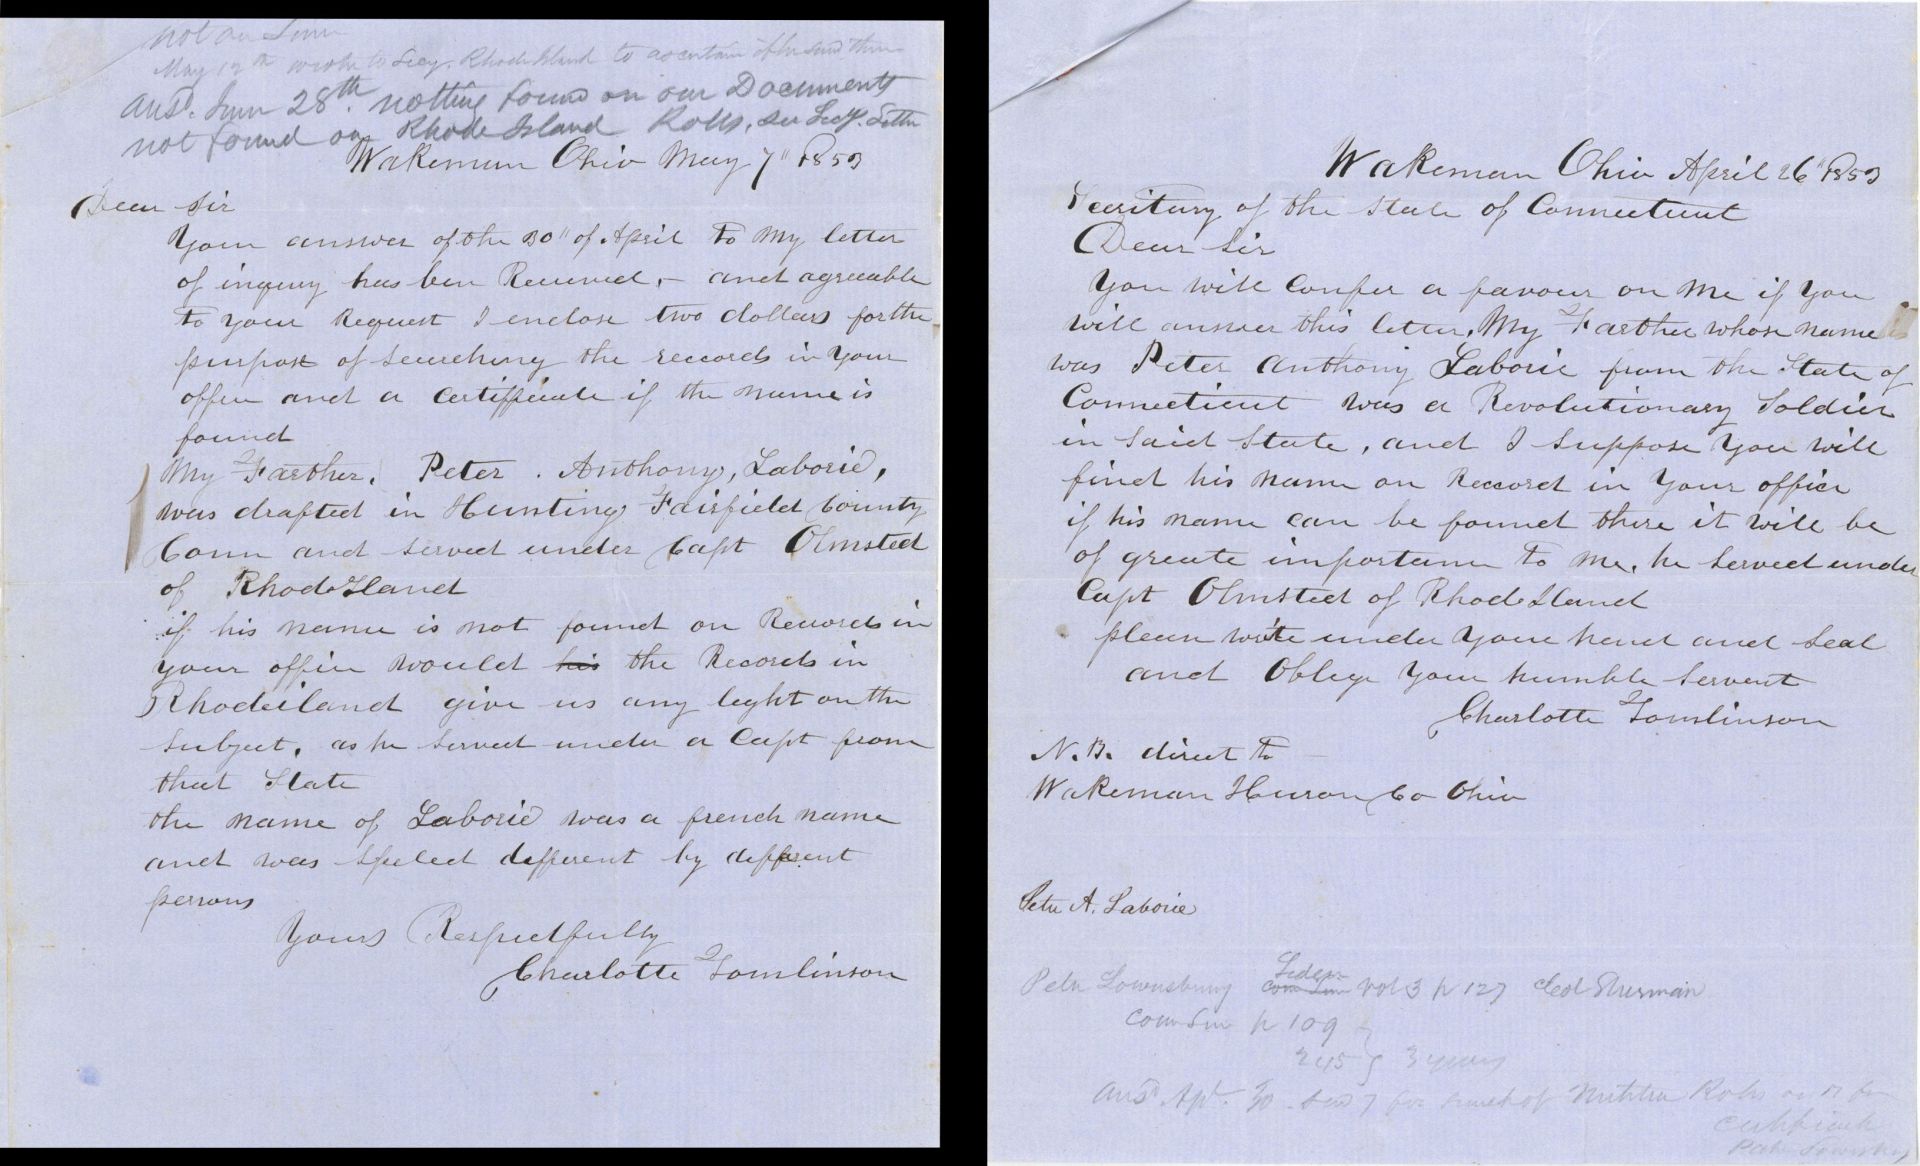 not on
May 12th wrote to Secy. Rhode Island to ascertain if he served there
Ansd. June 28th. nothing found on our Documents
not found on Rhode Island Rolls, see Secy. Letter
Wakeman Ohio May 7" 1853
Dear Sir
Your answer of the 30" of April to My letter
of inquiry has ben Received, - and agreeable
to your Request I enclose two dollars for the
purpose of searching the reccords in your
office and a certifficate if the name is
found
My Farther, Peter . Anthony, Laborie,
was drafted in Hunting Fairfield County
Conn and served under Capt Olmsted
of Rhode Iland
if his name is not found on Records in
your office would his the Records in
Rhodeiland give us any leght on the
subject, as he served under a Capt from
that State
the name of Laborie was a french name
and was speled different by different
persons
Yours Respectfully
Charlotte Tomlinson
Wakeman Ohio April 26" 1853
Secritary of the State of Connecticut
Dear Sir
You will confer a favour on Me if you
will answer this letter, My Farther whose name
was Peter Anthony Laborie from the State of
Connecticut was a Revolutionary Soldier
in said State, and I suppose you will
find his name on Reccord in your office
if his name can be found there it will be
of greate importance to me, he served under
Capt Olmsted of Rhode Iland
pleas write under your hand and seal
and Oblege your humble servent
Charlotte Tomlinson
N.B. direct to
Wakeman Huron Co Ohio
Peter A. Laborie
Peter Lownsbury vol 3 p 127 Col Sherman
p 109
245 } 3 years
Ansd. Apl. 30 for search of Militia Rolls
certificate